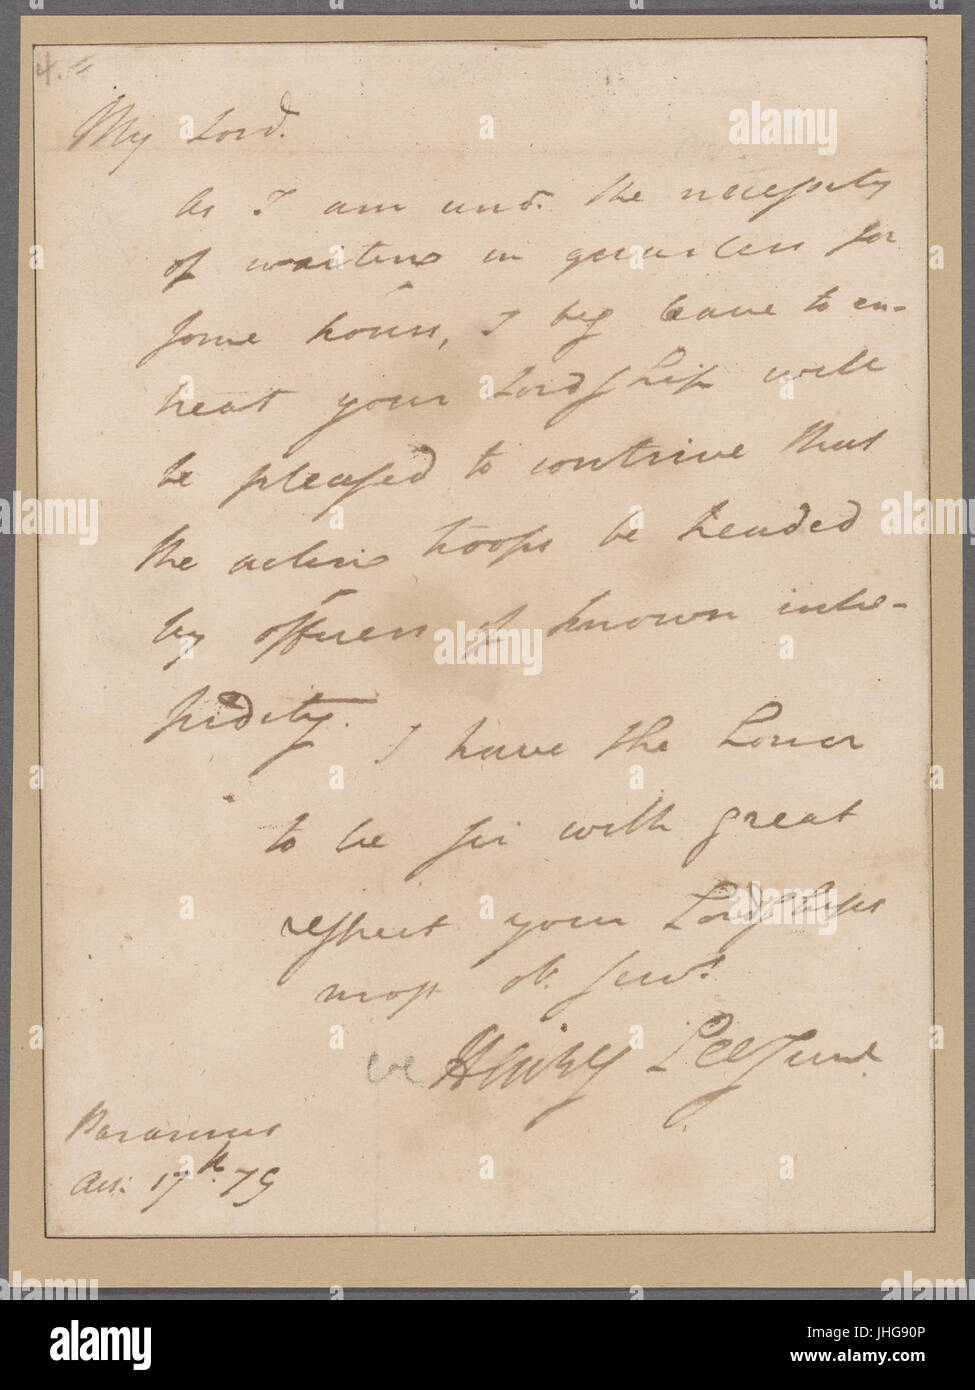 4.=
My Lord.
As I am und. the necessity
of waiting in quarters for
some hours, I beg leave to en-
treat your Lordship will
be pleased to contrive that
the acting troops be headed
by officers of known intre-
pidity. I have the honor
to be sir with great
respect your Lordships
most ob. servt
Henry Lee Junr.
Paramus
Aus: 17th. 79
alamy
alamy stock photo
JHG90P
www.alamy.com